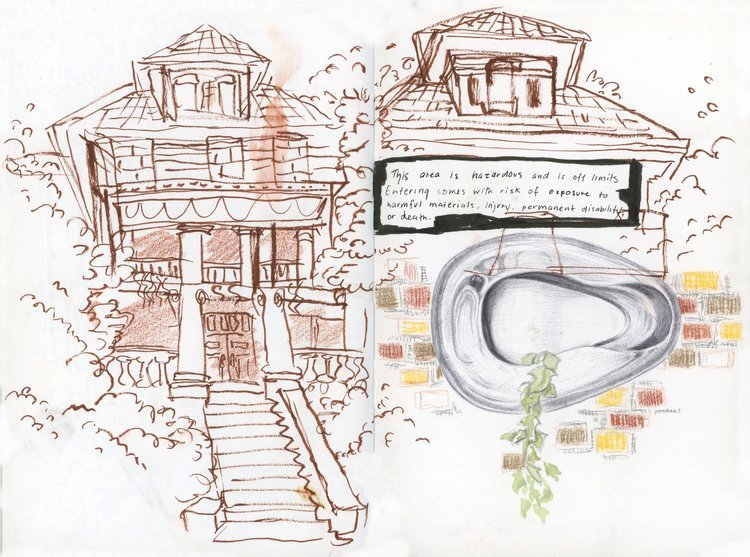 This area is hazardous and is off limits
Entering comes with risk of exposure to
harmful materials, injury, permanent disability
or death.